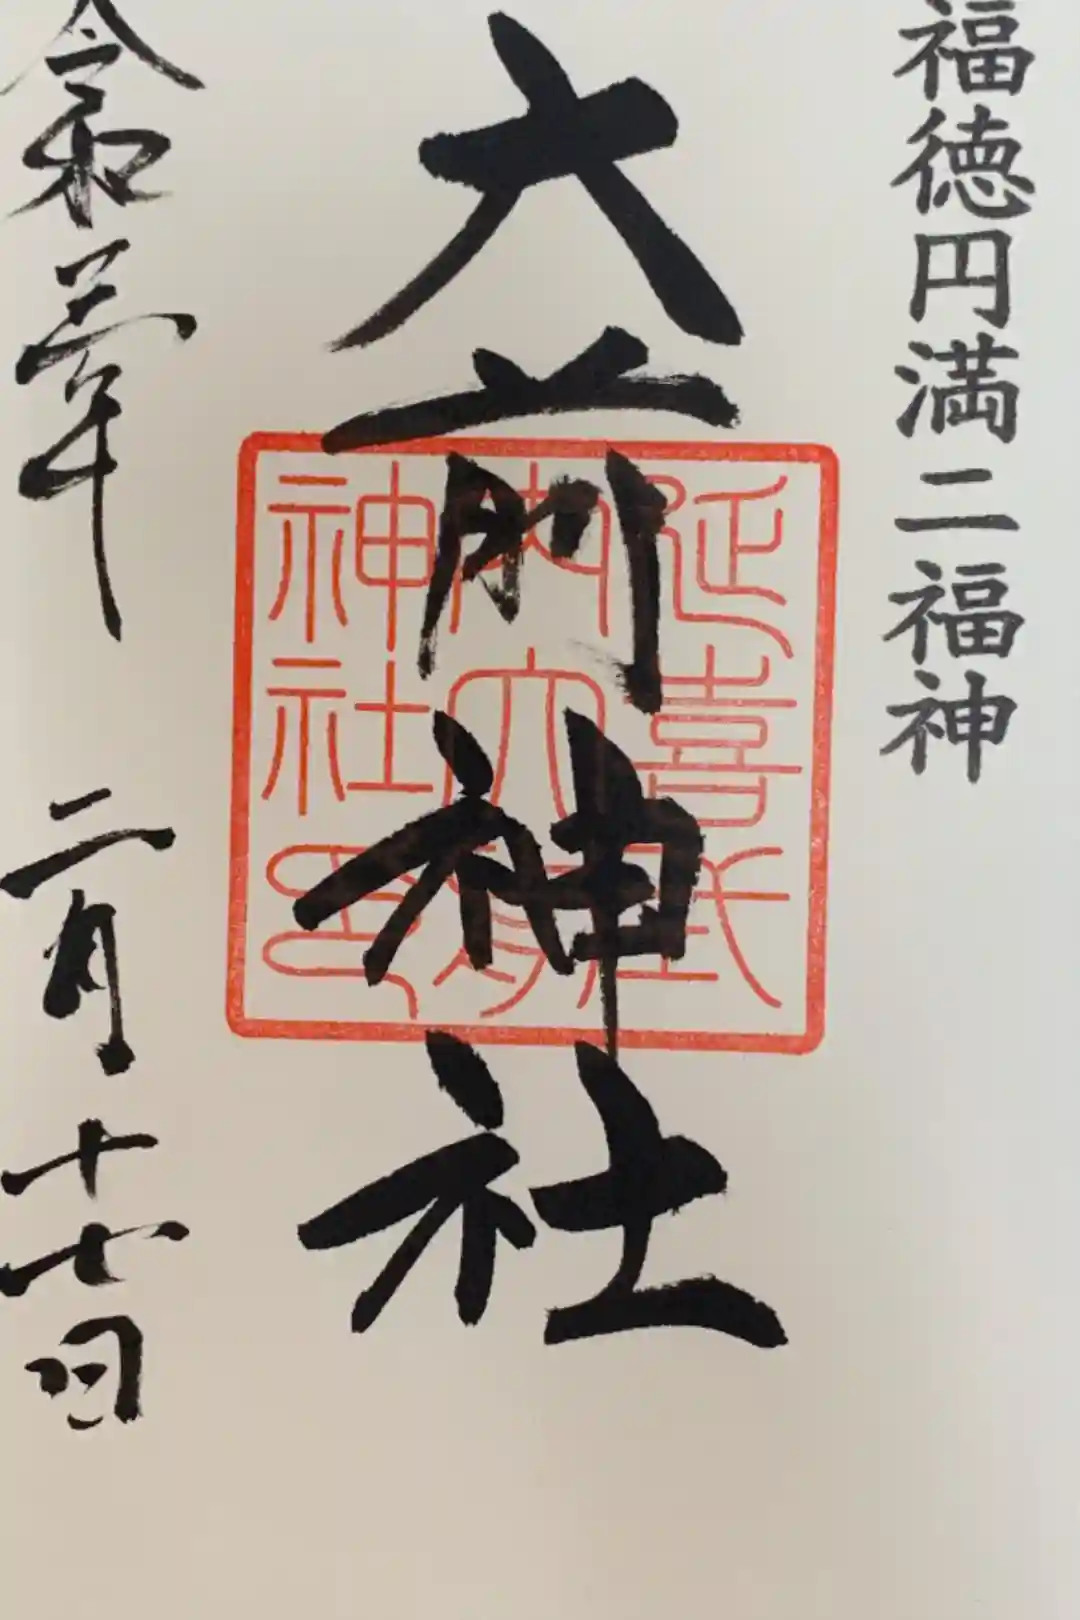 福徳円満二福神
大前神社
延喜式
内大前
神社印
令和六年 二月十七日